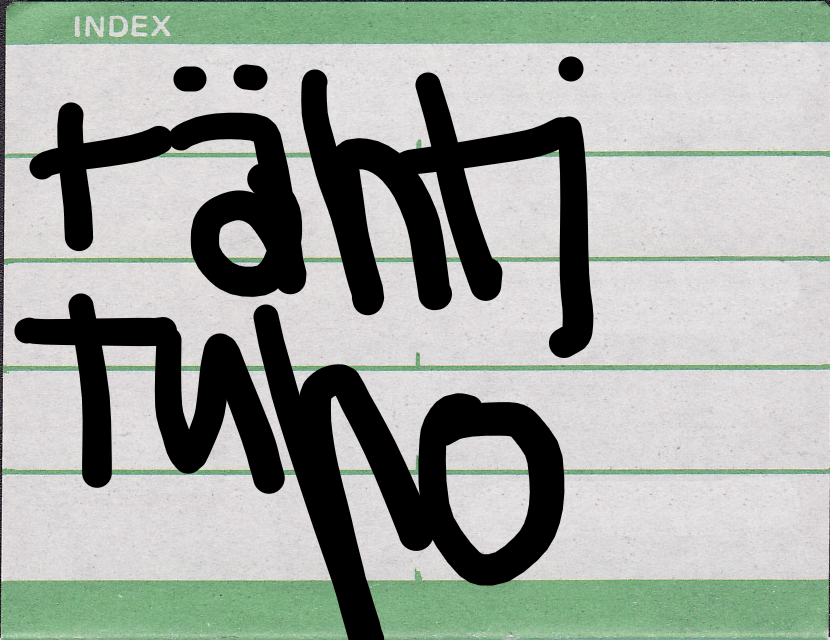 INDEX
tähtj
tuho